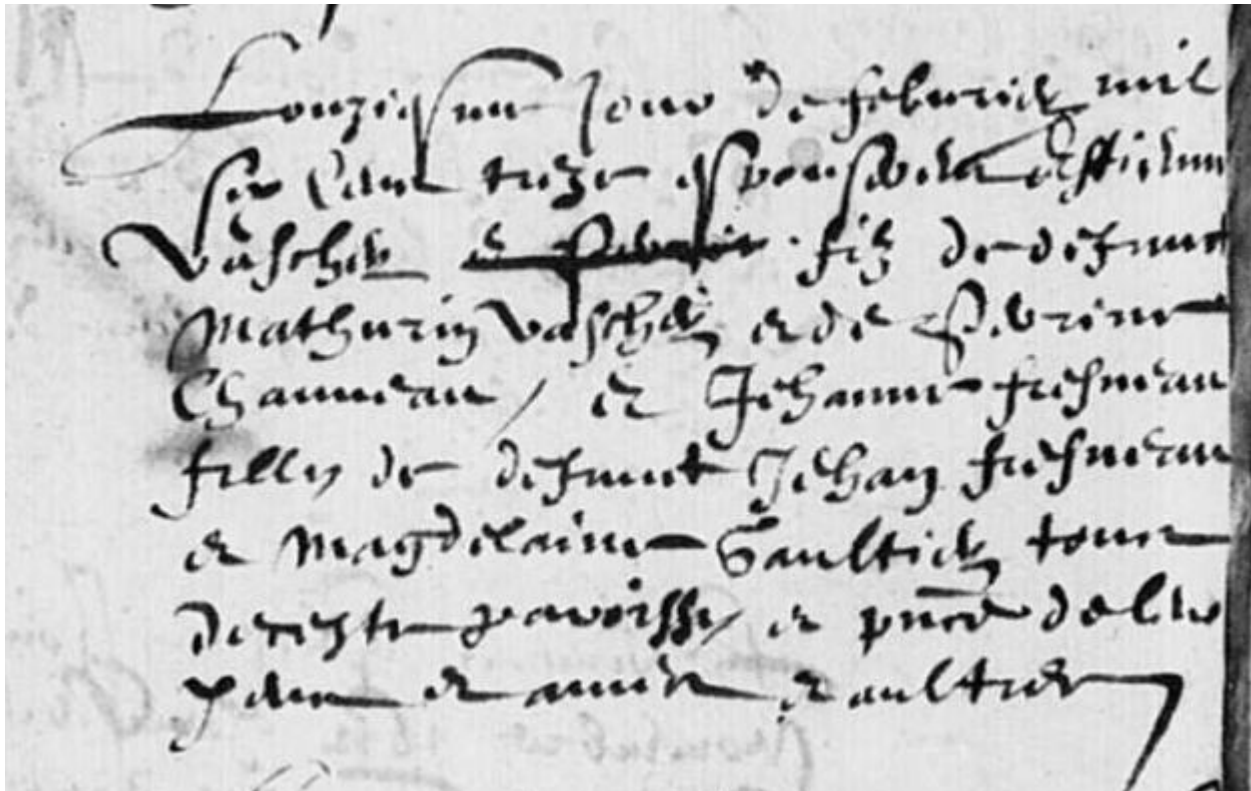 Lonziesme Jour de febvrier mil
six cent treze espouserent Estienne
Vascher et Perrine filz de defunct
Mathurin Vascher et de Perrine
Chauveau / et Jehanne fresneau
fille de defunct Jehan fresneau
et Magdelaine Gaultier tous
de ceste paroisse / et pnce de leurs
et amis et aultres